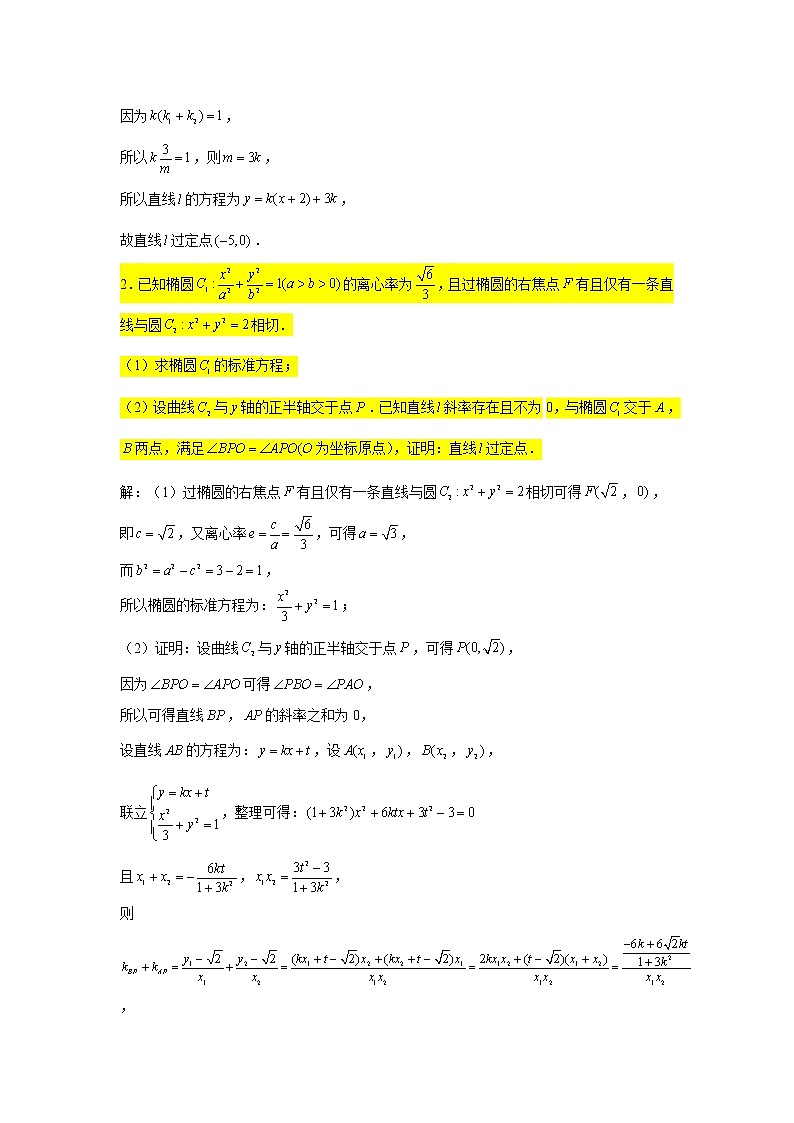 因为k(k₁+k₂)=1，
所以k 3/m=1，则m=3k，
所以直线l的方程为y=k(x+2)+3k，
故直线l过定点(−5,0)．
2．已知椭圆C₁:x²/a²+y²/b²=1(a>b>0)的离心率为√6/3，且过椭圆的右焦点F有且仅有一条直
线与圆C₂:x²+y²=2相切．
（1）求椭圆C₁的标准方程；
（2）设曲线C₂与y轴的正半轴交于点P．已知直线l斜率存在且不为0，与椭圆C₁交于A，
B两点，满足∠BPO=∠APO(O为坐标原点)，证明：直线l过定点．
解：（1）过椭圆的右焦点F有且仅有一条直线与圆C₂:x²+y²=2相切可得F(√2，0)，
即c=√2，又离心率e=c/a=√6/3，可得a=√3，
而b²=a²−c²=3−2=1，
所以椭圆的标准方程为：x²/3+y²=1；
（2）证明：设曲线C₂与y轴的正半轴交于点P，可得P(0,√2)，
因为∠BPO=∠APO可得∠PBO=∠PAO，
所以可得直线BP，AP的斜率之和为0，
设直线AB的方程为：y=kx+t，设A(x₁，y₁)，B(x₂，y₂)，
联立{y=kx+t x²/3+y²=1，整理可得：(1+3k²)x²+6ktx+3t²−3=0
且x₁+x₂=−6kt/(1+3k²)，x₁x₂=(3t²−3)/(1+3k²)，
则
k_BP+k_AP=(y₁−√2)/x₁+(y₂−√2)/x₂=((kx₁+t−√2)x₂+(kx₂+t−√2)x₁)/(x₁x₂)=(2kx₁x₂+(t−√2)(x₁+x₂))/(x₁x₂)=((−6k+6√2kt)/(1+3k²))/(x₁x₂)
，